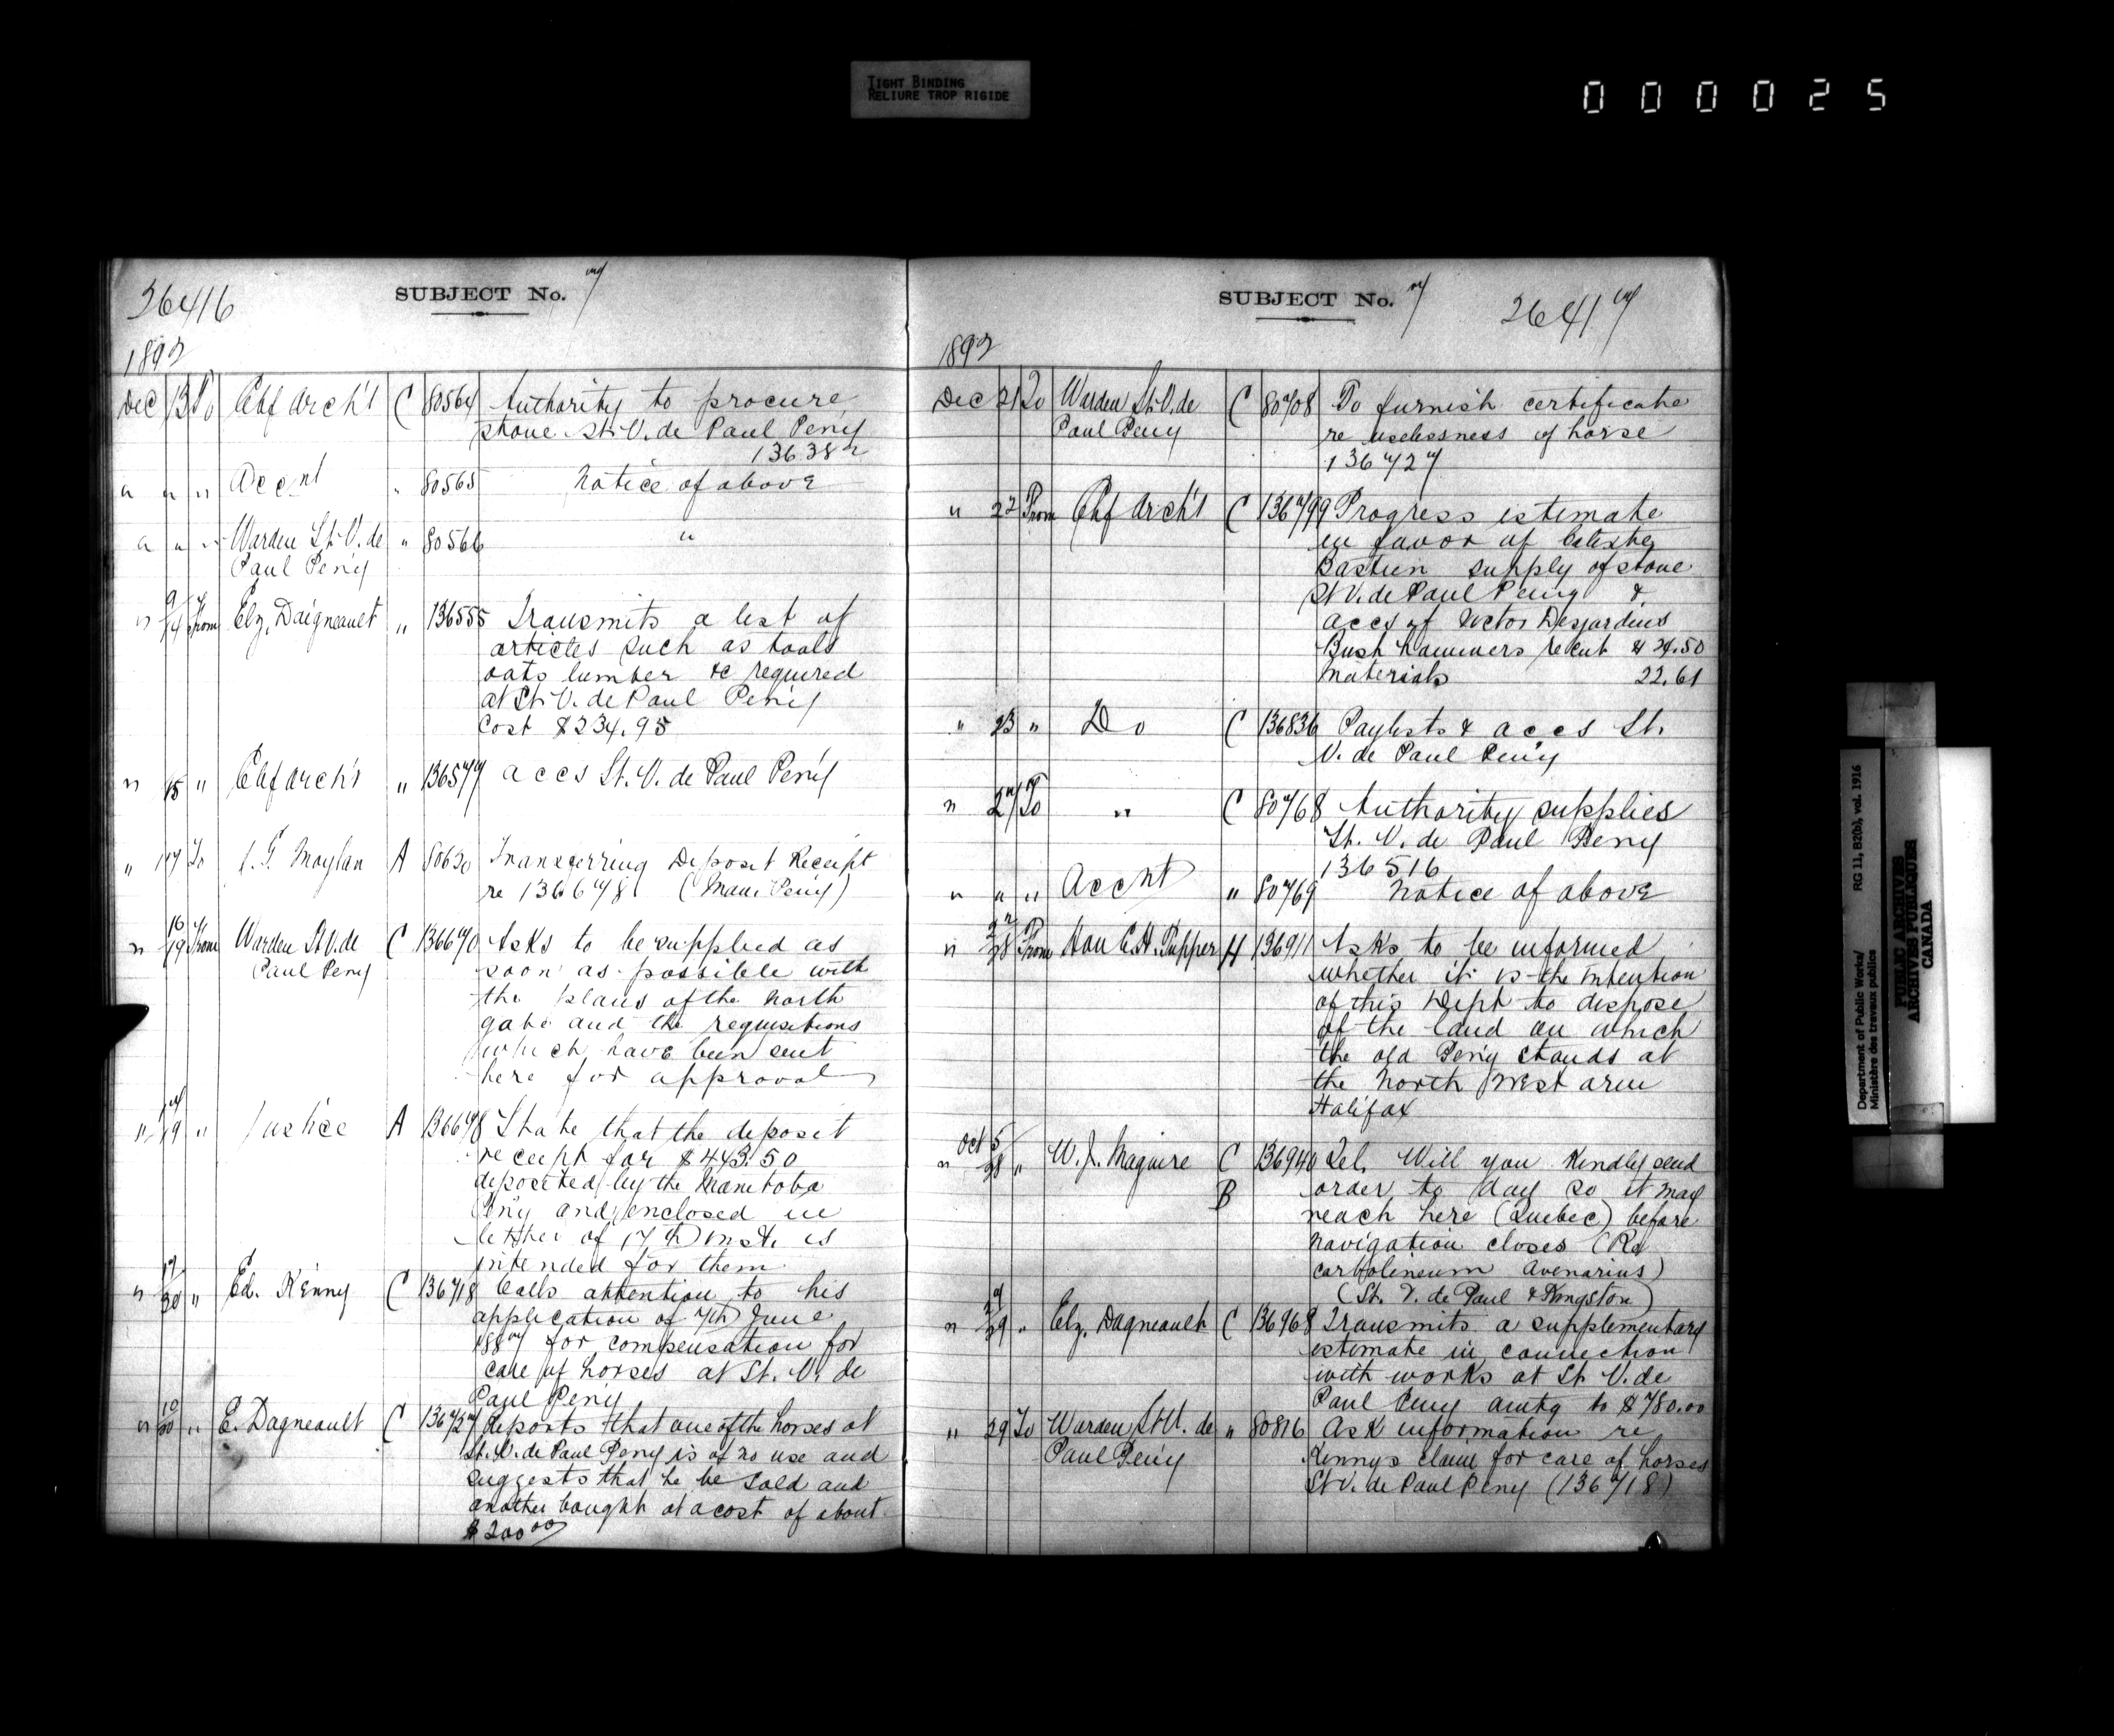 TIGHT BINDING
RELIURE TROP RIGIDE
000025
26416
SUBJECT No. 7
1892
Dec 13 To Chf Arch't C 80564 Authority to procure
stone St. V. de Paul Pen'y
136382
" " " Acc'nt " 80565 Notice of above
" " " Warden St. V. de " 80566 "
Paul Pen'y
" 9/14 From Elz. Daigneault " 136555 Transmits a list of
articles such as tools
oats lumber &c required
at St. V. de Paul Pen'y
Cost $234.95
" 15 " Chf Arch't " 136577 Accs St. V. de Paul Pen'y
" 17 To J. G. Moylan A 80630 Transferring Deposit Receipt
re 136678 (Man. Pen'y)
" 16/19 From Warden St V. de C 136670 Asks to be supplied as
Paul Peny
soon as possible with
the plans of the North
gate and the requisitions
which have been sent
here for approval
" 17/19 " Justice A 136678 State that the deposit
receipt for $443.50
deposited by the Manitoba
Pen'y and enclosed in
letter of 17th inst. is
intended for them
" 19/20 " Ed. Kenny C 136718 Calls attention to his
application of 7th June
1887 for compensation for
care of horses at St. V. de
Paul Peny
" 10/20 " E. Dagneault C 136727 Reports that one of the horses at
St. V. de Paul Peny is of no use and
suggests that he be sold and
another bought at a cost of about
$200.00
SUBJECT No. 7
26417
1892
Dec 21 To Warden St. V. de C 80708 To furnish certificate
Paul Peny
re uselessness of horse
136727
" 22 From Chf Arch't C 136799 Progress estimate
in favor of Calixte
Bastien supply of stone
St V. de Paul Peny &
accs of Victor Desjardins
Bush hammers recut $24.50
Materials 22.61
" 23 " Do C 136836 Paylists & accs St.
V. de Paul Pen'y
" 27 To " C 80768 Authority supplies
St. V. de Paul Peny
136516
" " " Acc'nt " 80769 Notice of above
" 27/28 From Hon C. H. Tupper H 136911 Asks to be informed
whether it is the intention
of this Dept to dispose
of the land on which
the old Pen'y stands at
the North West arm
Halifax
" Oct 5/28 " W. J. Maguire C 136940 Tel. Will you kindly send
B
order to day so it may
reach here (Quebec) before
navigation closes (Re
carbolineum avenarius)
(St. V. de Paul & Kingston)
" 27/29 " Elz. Dagneault C 136968 Transmits a supplementary
estimate in connection
with works at St V. de
Paul Peny amtg to $780.00
" 29 To Warden St V. de " 80816 Ask information re
Paul Pen'y
Kennys claim for care of horses
St V. de Paul Peny (136718)
Department of Public Works/ RG 11, B2(b), vol. 1916
Ministère des travaux publics
PUBLIC ARCHIVES
ARCHIVES PUBLIQUES
CANADA